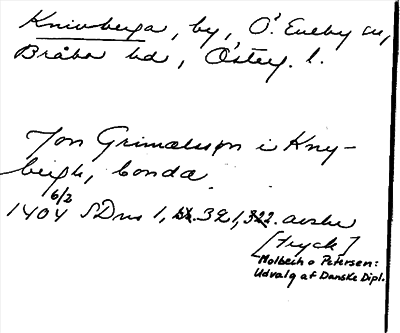 Knivberga, by, Ö. Eneby sn,
Bråbo hd, Österg. l.
Jon Grimaluson i Kny-
bergh, bonda
6/2
1404 SDns 1, 321, 322. avskr
[tryck]
Molbech o Petersen:
Udvalg af Danske Dipl.